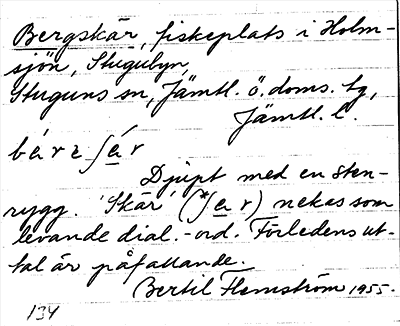 Bergskär, fiskeplats i Holm-
sjön, Stugubyn,
Stuguns sn, Jämtl. ö. doms. tg,
Jämtl. l.
bárzʃár
Djupt med en sten-
rygg. 'Skär' (*ʃar) nekas som
levande dial.-ord. Förledens ut-
tal är påfallande.
Bertil Flemström 1955.
134